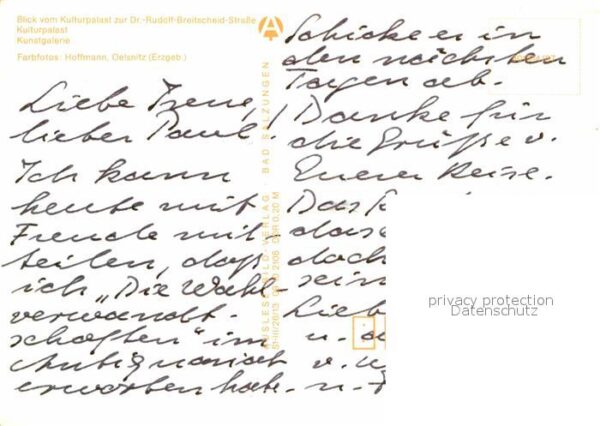 Blick vom Kulturpalast zur Dr.-Rudolf-Breitscheid-Straße
Kulturpalast
Kunstgalerie
Farbfotos: Hoffmann, Oelsnitz (Erzgeb.)
Liebe Irene,
lieber Paul!
Ich kann
heute mit
Freude mit-
teilen, daß
ich „Die Wahl-
verwandt-
schaften" im
Antiquariat
erworben habe.
Schicke er in
den nächsten
Tagen ab.
Danke für
die Grüße v.
Eurer Reise.
Das
das
doch
sein
Lieb
u.
v.
u.
VERLAG · BAD SALZUNGEN
DDR 0,20 M
privacy protection
Datenschutz